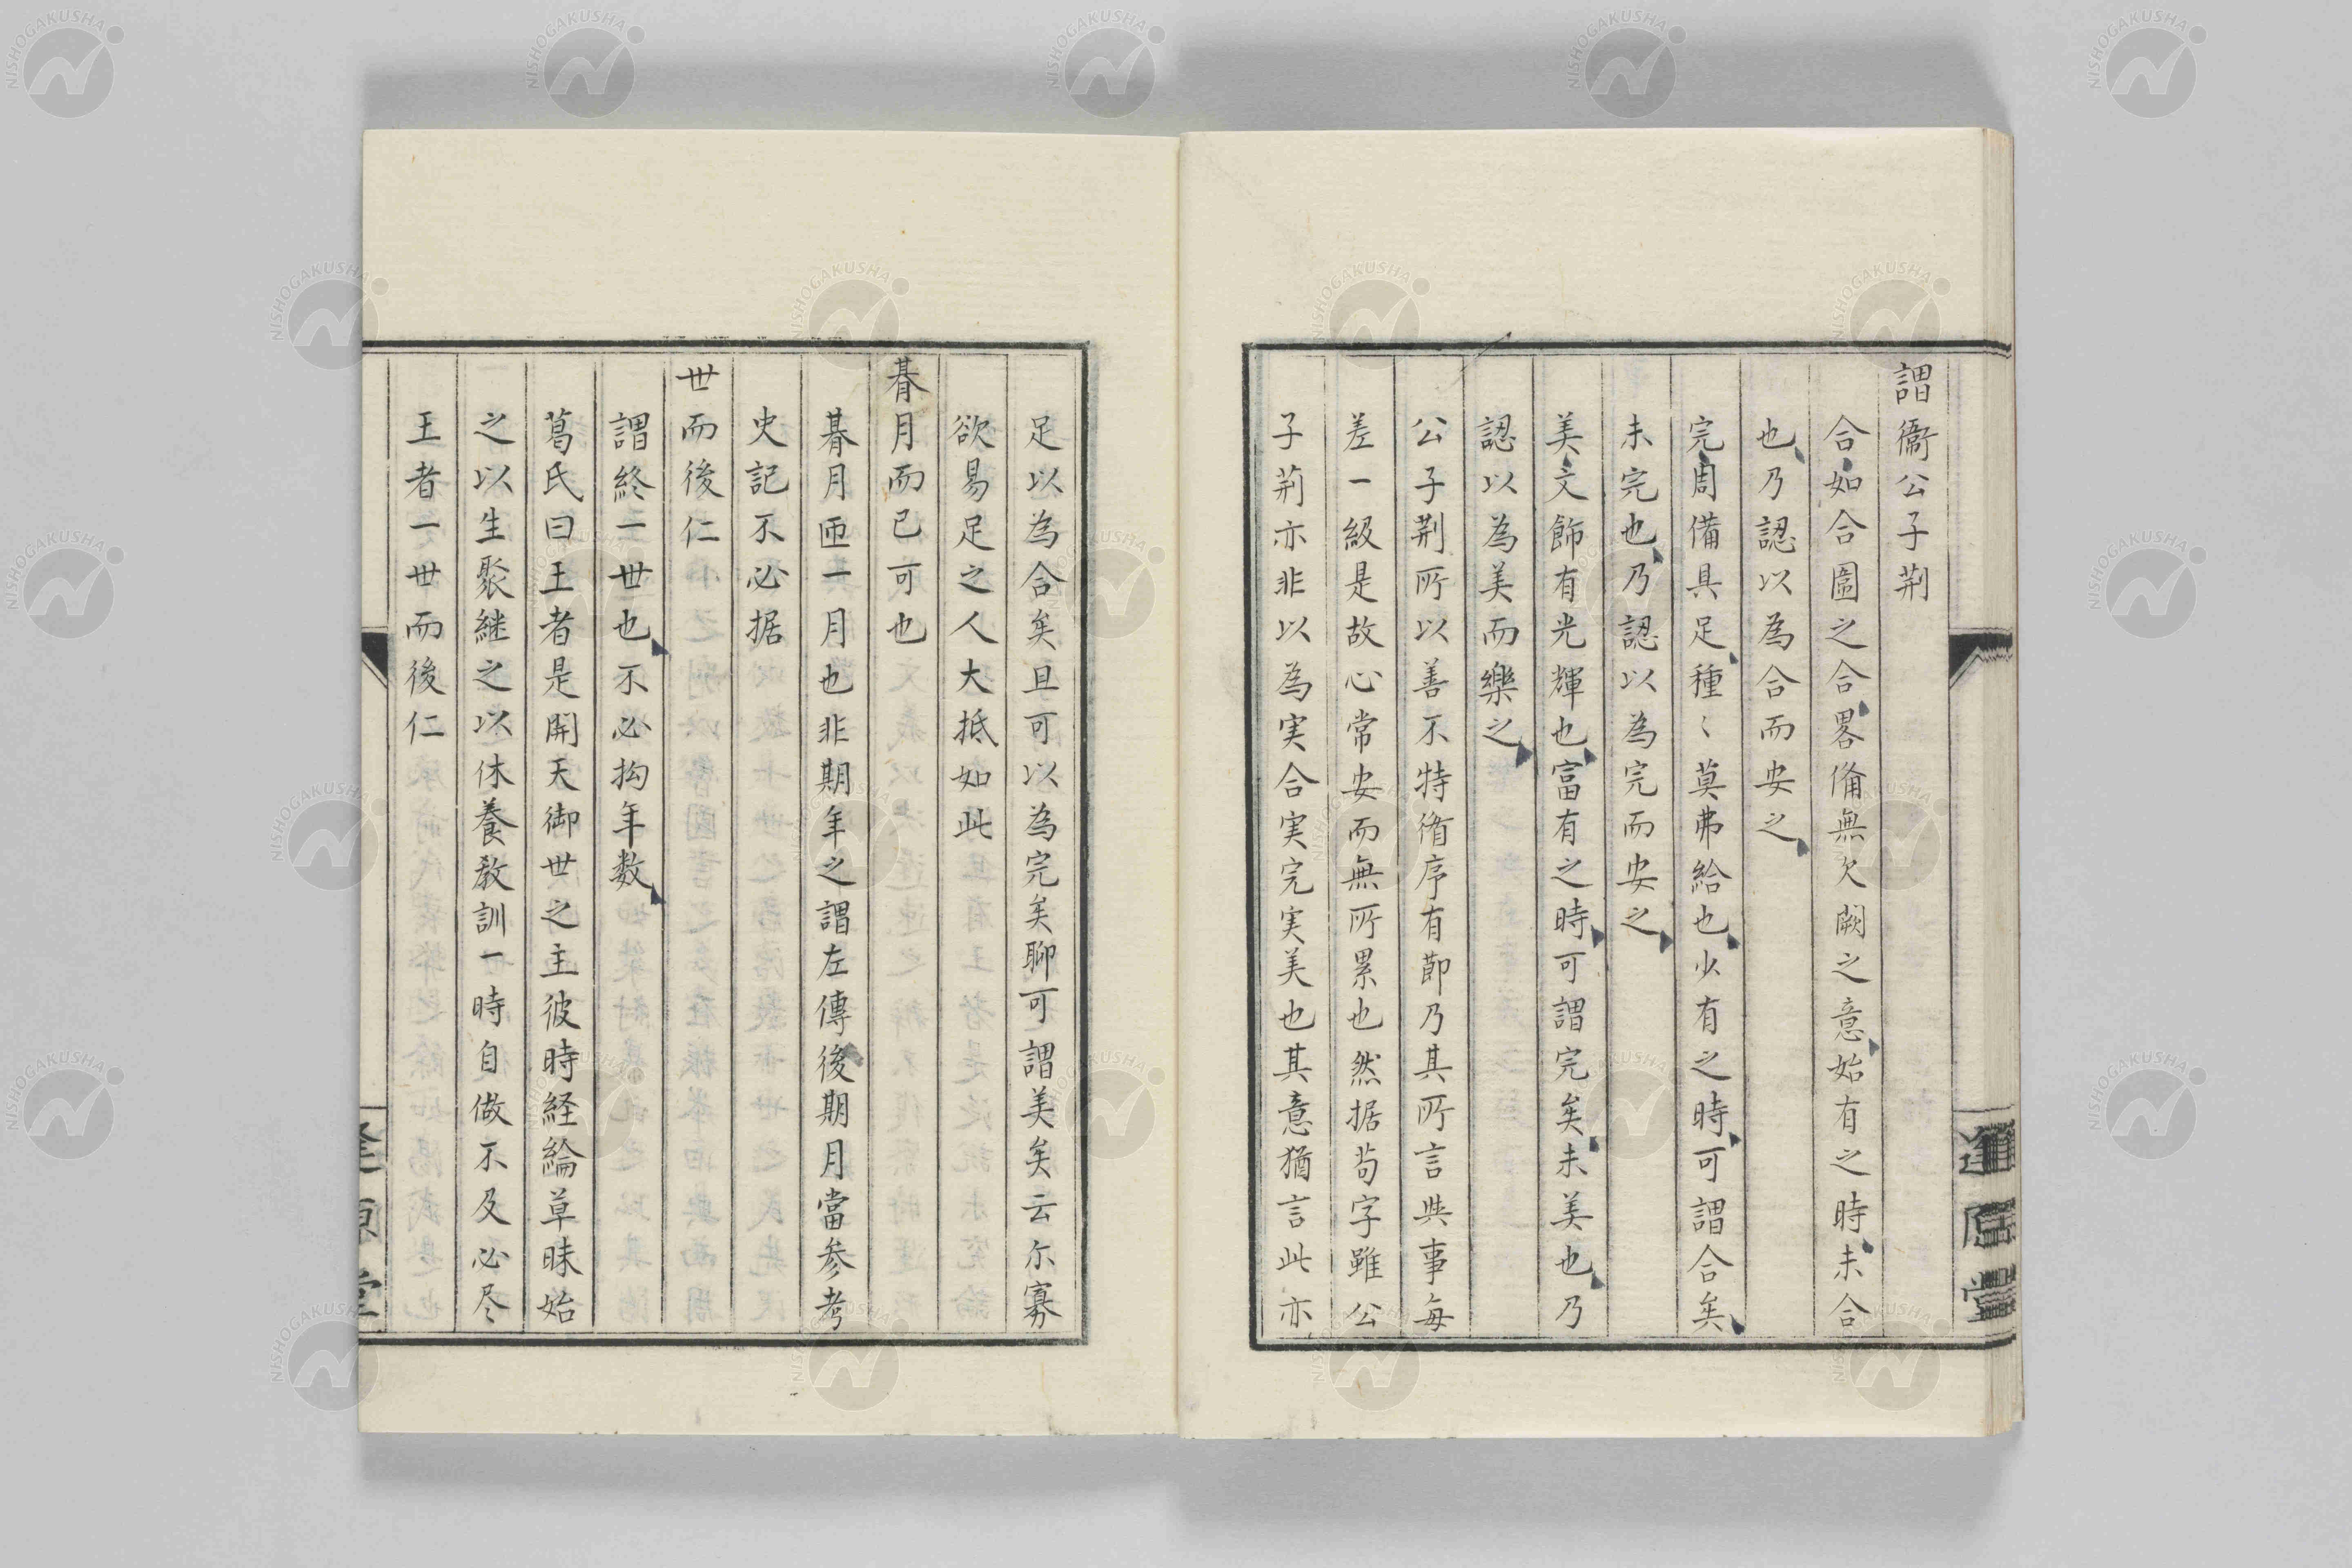 謂衞公子荆
合如合圖之合畧備無欠闕之意始有之時未合
也乃認以為合而安之
完周備具足種〻莫弗給也少有之時可謂合矣
未完也乃認以為完而安之
美文飾有光輝也富有之時可謂完矣未美也乃
認以為美而樂之
公子荆所以善不特循序有節乃其所言與事每
差一級是故心常安而無所累也然据苟字雖公
子荆亦非以為実合実完実美也其意猶言此亦
足以為合矣且可以為完矣聊可謂美矣云尔寡
欲易足之人大抵如此
朞月而已可也
朞月匝一月也非期年之謂左傳後期月當参考
史記不必据
世而後仁
謂終一世也不必拘年数
葛氏曰王者是開天御世之主彼時経綸草昧始
之以生聚継之以休養教訓一時自做不及必尽
王者一世而後仁
逢原堂